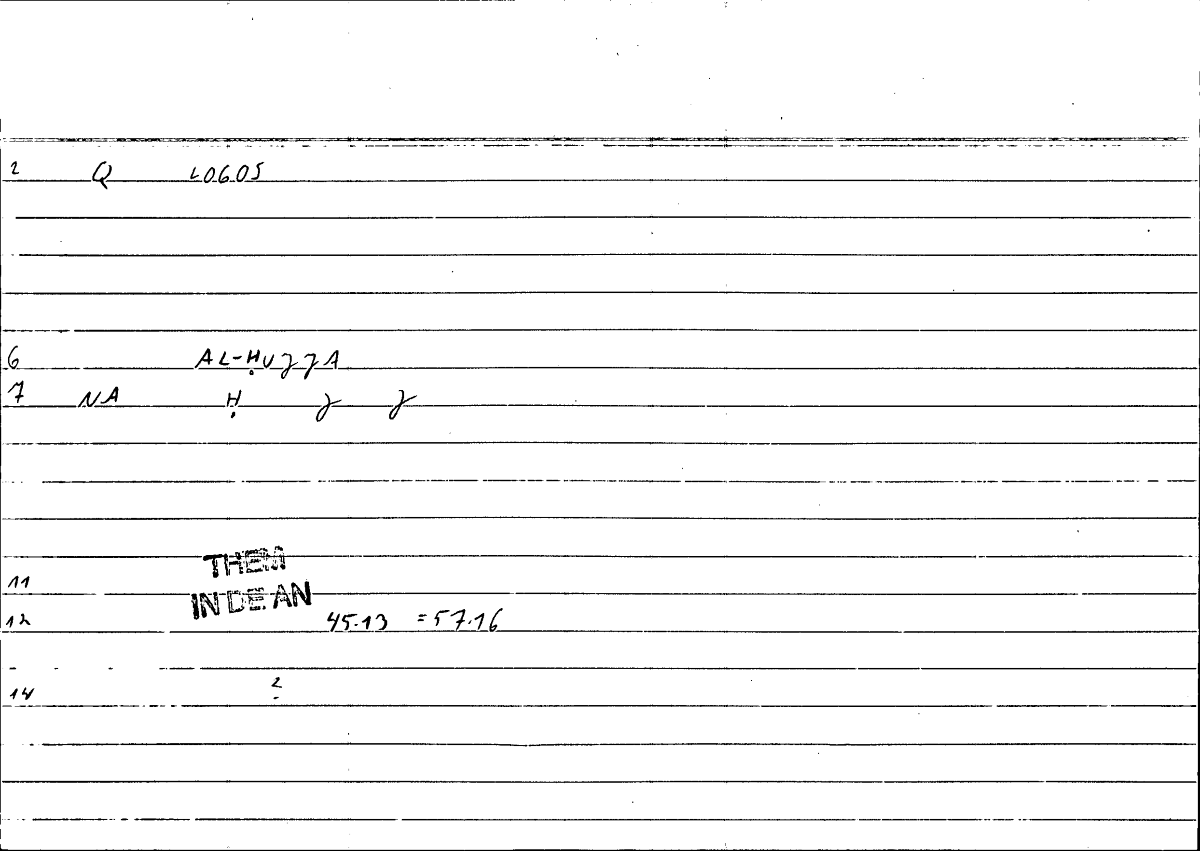 2 Q LOGOS
6 AL-ḤUʒʒA
7 NA Ḥ ʒ ʒ
THEM
11
IN DE AN
12 45.13 = 57.16
14 2